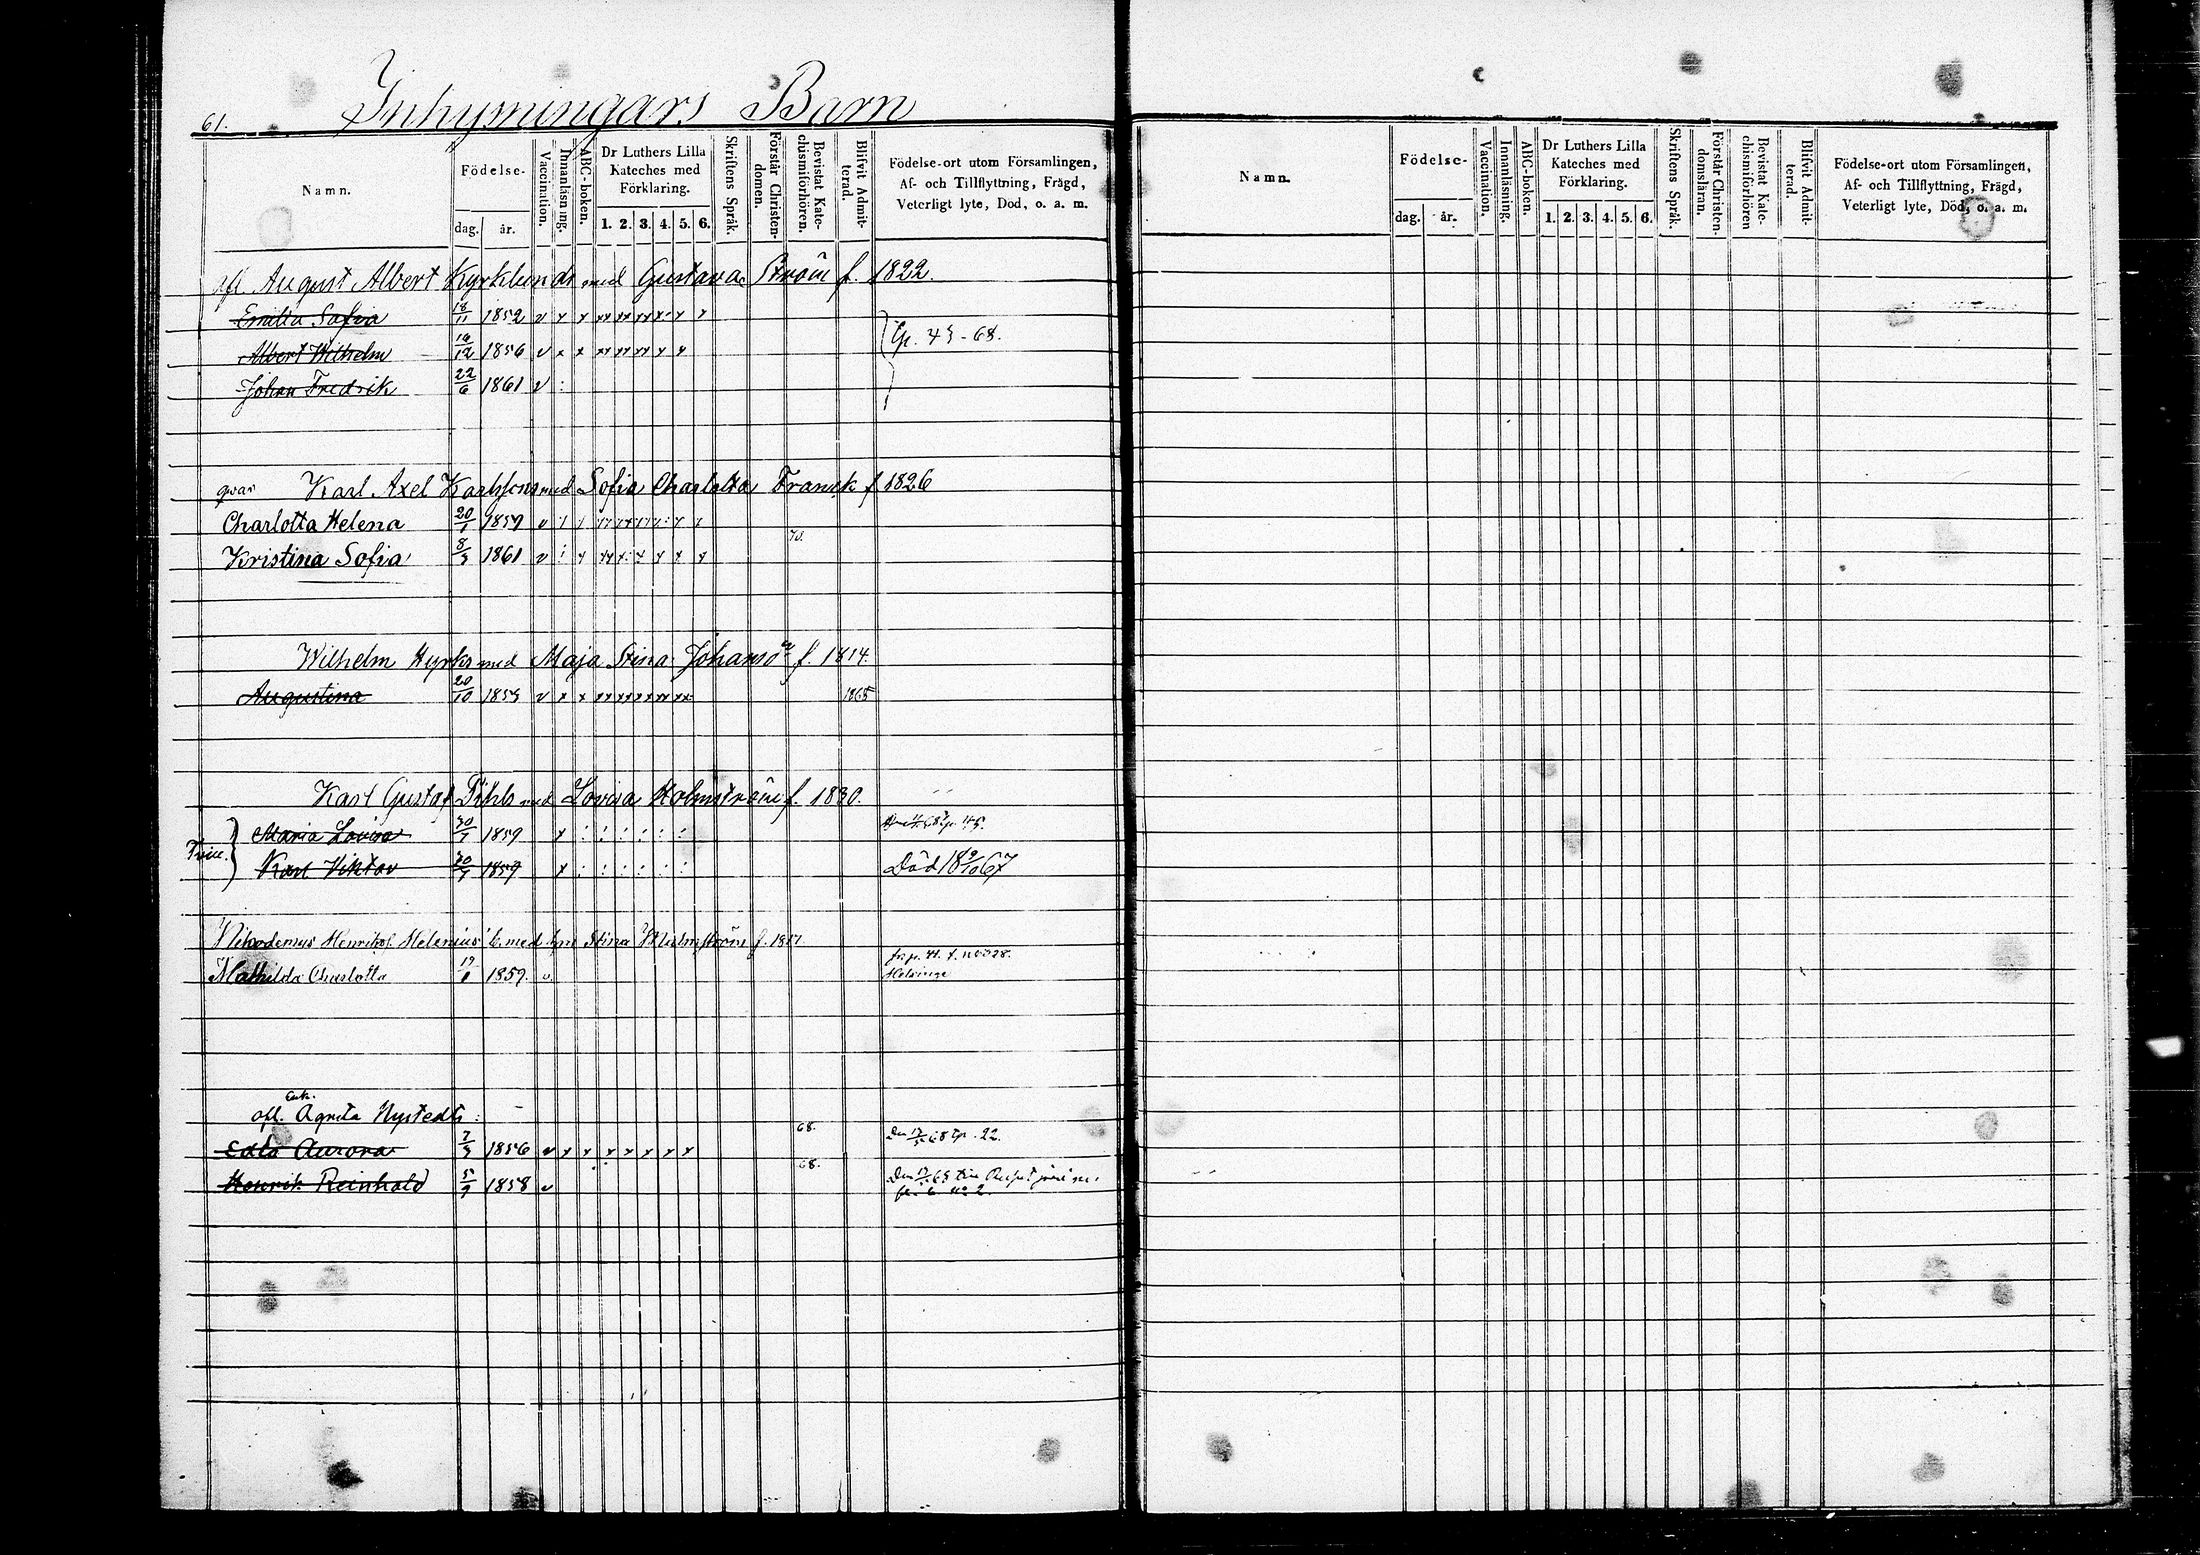 61. Inhysningars Barn
Namn. Födelse- dag. år. Vaccination. Innanläsning. ABC-boken. Dr Luthers Lilla Kateches med Förklaring. 1. 2. 3. 4. 5. 6. Skriftens Språk. Förstår Christendomen. Bevistat Katechismiförhören. Blifvit Admitterad. Födelse-ort utom Församlingen, Af- och Tillflyttning, Frägd, Veterligt lyte, Död, o. a. m.
afl. August Albert Kyrklunds med Gustava Ström f. 1822.
Emilia Sofia 18/11 1852 v x x xx xx xx x x x
Albert Wilhelm 1856 v x x xx xx xx x x
Johan Fredrik 22/6 1861 v :
Karl Axel Karlssons med Sofia Charlotta Franck f 1826
Charlotta Helena 20/1 1859 v
Kristina Sofia 1861 v
Wilhelm Hyrks med Maja Stina f. 1814.
Augustina 20/10 v x x xx xx xx xx xx 1865
Karl Gustaf Pihls med Lovisa Holmström f. 1830.
Maria Lovisa 1859 x : : : : : :
Karl Viktor 1859 x : : : : : : Död 18 9/10 67
Nikodemus Henrikss. Helenius' b. med Stina Malmström f.
Mathilda Charlotta 19/1 1859. v. Helsinge
Enk.
afl. Agneta Nystedts :
Eda Aurora 1856 v x x x x x x x x 68. 22.
Henrik Reinhold 1858 v 68.
Namn. Födelse- dag. år. Vaccination. Innanläsning. ABC-boken. Dr Luthers Lilla Kateches med Förklaring. 1. 2. 3. 4. 5. 6. Skriftens Språk. Förstår Christendomsläran. Bevistat Katechismiförhören Blifvit Admitterad. Födelse-ort utom Församlingen, Af- och Tillflyttning, Frägd, Veterligt lyte, Död, o. a. m.